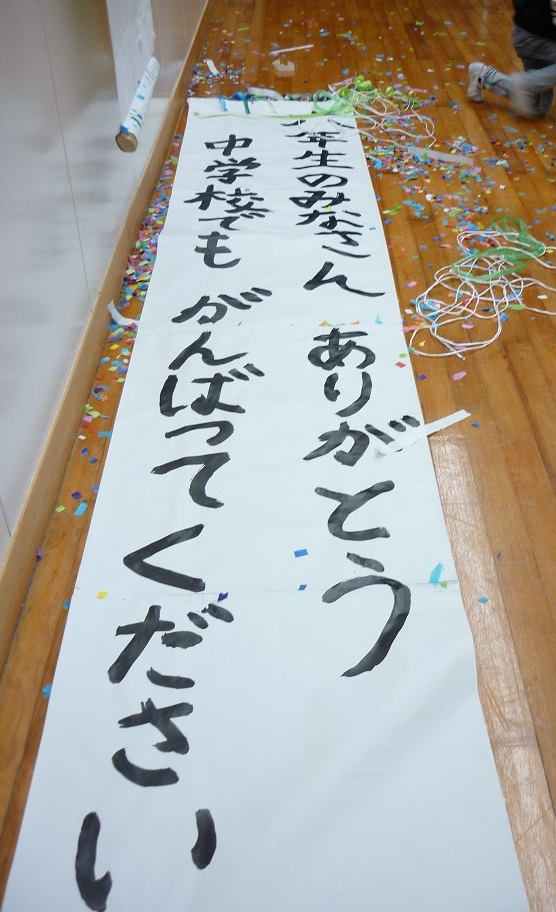 六年生のみなさん ありがとう
中学校でも がんばってください